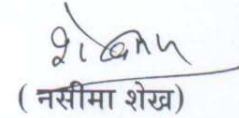 ( नसीमा शेख)